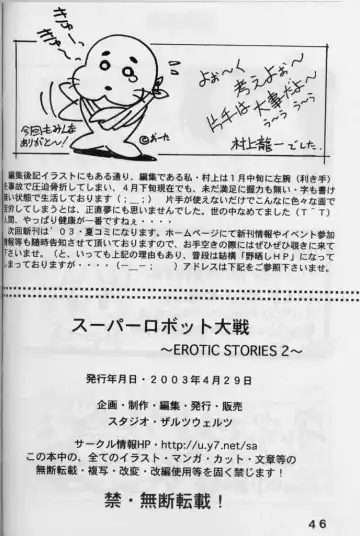 きゅーっ
きゅ〜っ
よぉ〜く
考えよぉ〜
片手は大事だよ〜
う〜う〜う〜う〜
今回もみんな
ありがと〜!
©おーた
村上龍一でした.
編集後記イラストにもある通り、編集である私・村上は1月中旬に左腕（利き手）
を事故で圧迫骨折してしまい、4月下旬現在でも、未だ満足に握力も無い・字も書け
ない状態で生活しております（；＿；）　片手が使えないだけでこんなに色々な面で
苦労してしまうとは、正直夢にも思いませんでした。世の中なめてました（T￣T）
人間、やっぱり健康が一番ですねぇ・・・・
次回新刊は'03・夏コミになります。ホームページにて新刊情報やイベント参加
情報等も随時告知させて頂いておりますので、お手空きの際にはぜひぜひ覗きに来て
下さいませ。（と、いっても上記の理由もあり、普段は結構「野晒しHP」になって
しまっておりますが・・・・（−＿−；　）アドレスは下記をご参照下さいませ。
スーパーロボット大戦
〜EROTIC STORIES 2〜
発行年月日・2003年4月29日
企画・制作・編集・発行・販売
スタジオ・ザルツヴェルツ
サークル情報HP・http://u.y7.net/sa
この本中の、全てのイラスト・マンガ・カット・文章等の
無断転載・複写・改変・改編使用等を固く禁じます！
禁・無断転載！
46